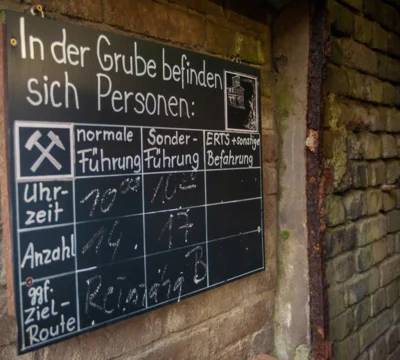 In der Grube befinden
sich Personen:
normale Führung
Sonder-Führung
ERTS + sonstige Befahrung
Uhr-zeit 10 00 10
Anzahl 14. 17
ggf. Ziel-Route B